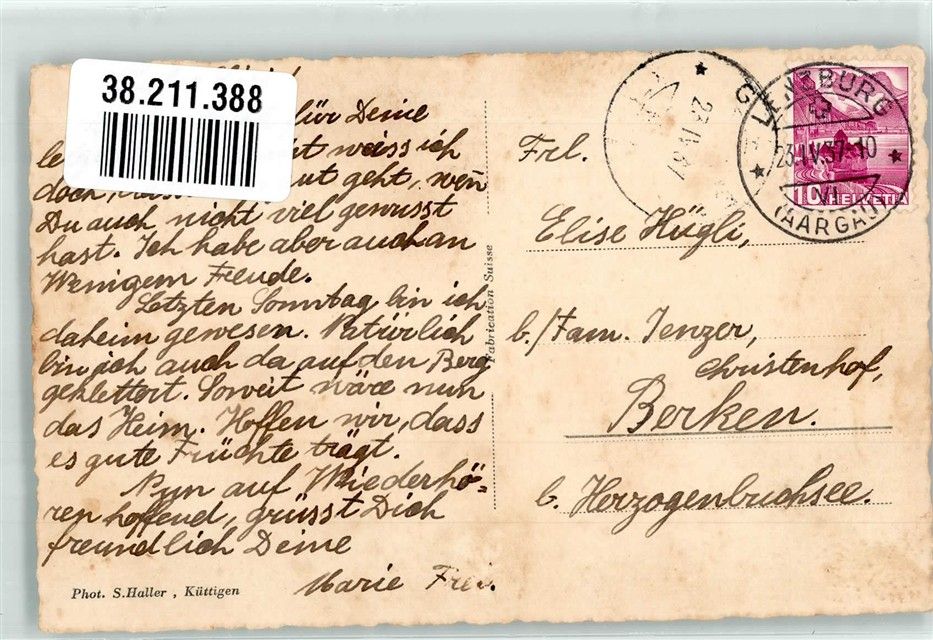 38.211.388
für Deine
weiss ich
doch, gut geht, wen
Du auch nicht viel gewusst
hast. Ich habe aber auch an
Wenigem Freude.
Letzten Sonntag bin ich
daheim gewesen. Natürlich
bin ich auch da auf den Berg
geklettert. Soweit wäre nun
das Heim. Hoffen wir, dass
es gute Früchte trägt.
Nun auf Wiederhö=
ren hoffend, grüsst Dich
freundlich Deine
Marie Frei.
Phot. S. Haller , Küttigen
Fabrication Suisse
LENZBURG
23.IV.37-10
VI
(AARGAU)
10 HELVETIA
23 IV 37
Frl.
Elise Hügli,
b./Fam. Jenzer,
Christenhof,
Berken.
b. Herzogenbuchsee.